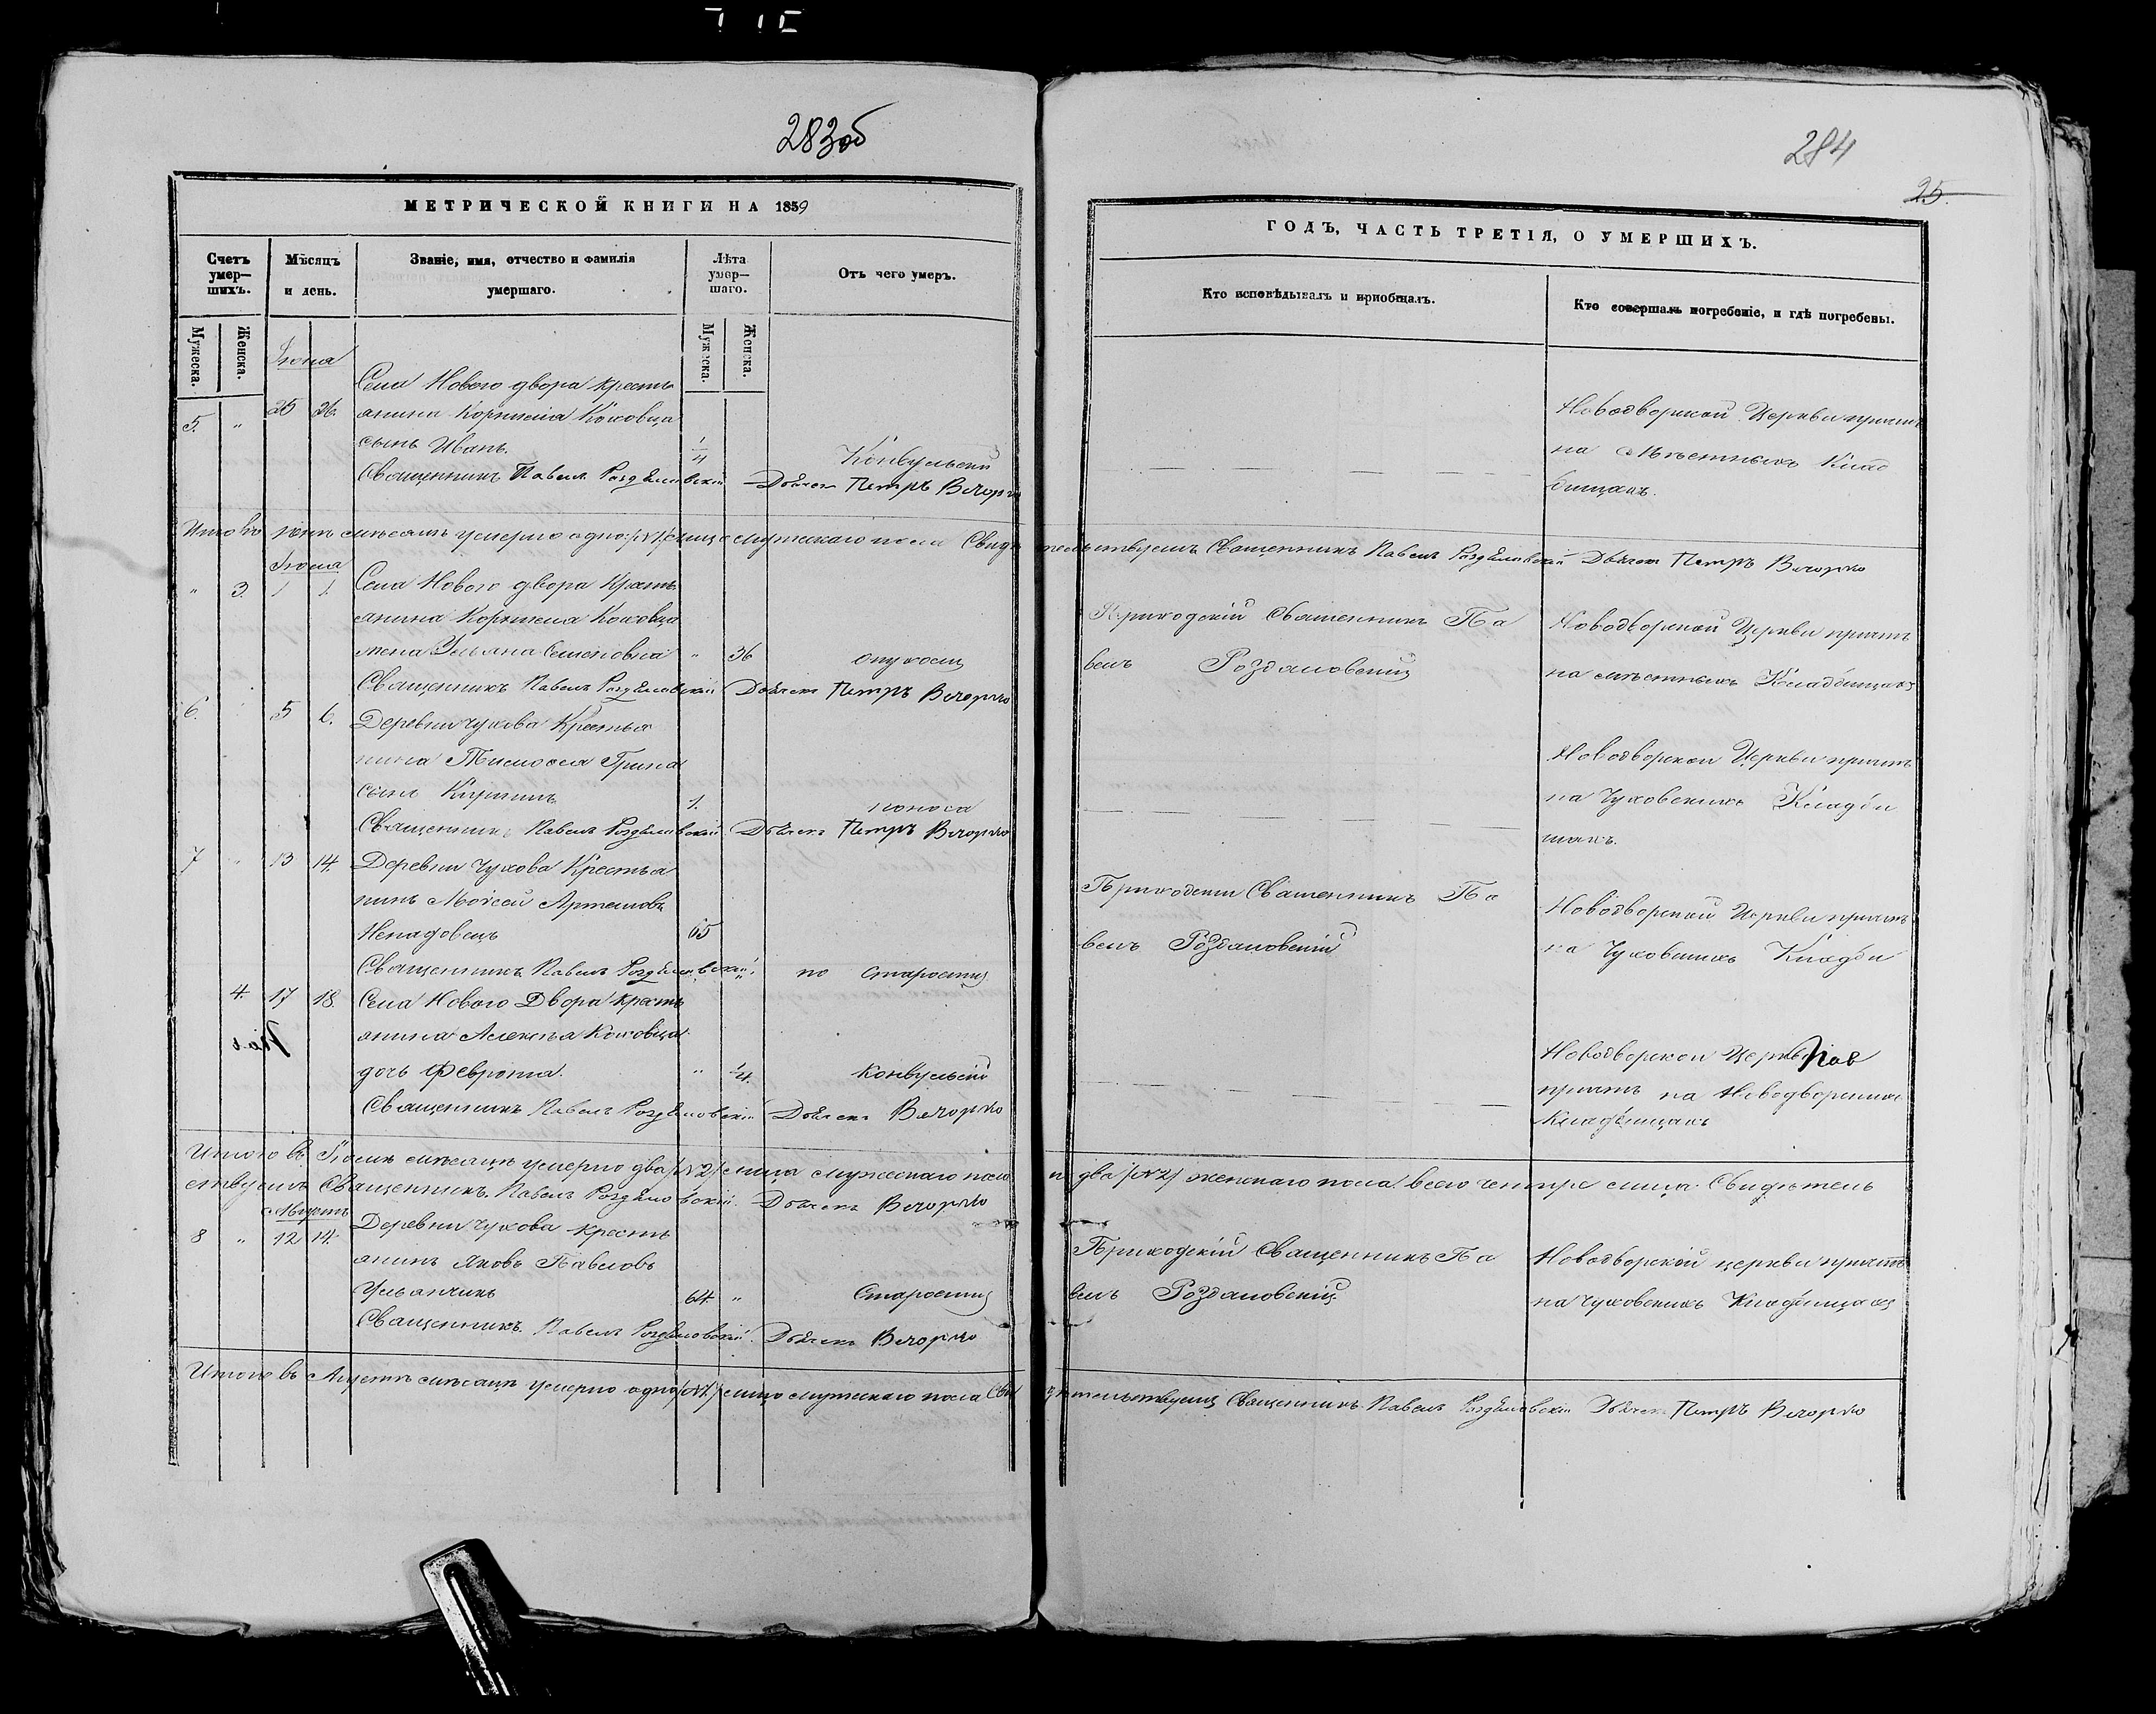 283об
МЕТРИЧЕСКОЙ КНИГИ НА 1859
Счетъ умер—шихъ.
Мѣсяцъ и день.
Званіе, имя, отчество и фамилія умершаго.
Лѣта умер—шаго.
Отъ чего умеръ.
Мужеска.
Женска.
Мужеска.
Женска.
Іюня
5. " 25 26.
Села Нового двора кресть
янина Корнилія Коховца
сынъ Иванъ. 1/4 Конвульсій
Священникъ Павелъ Роздяловскій Дьячекъ Петръ Вечорко
Итого въ Іюнѣ мѣсяцѣ умерло одно /№1/ лице мужескаго пола Свидѣ
Іюля
" 3. 1 1. Села Нового двора Кресть
янина Корнилія Коховца
жена Ульяна Семеновна " 36 опухоли
Священникъ Павелъ Роздяловскій Дьячекъ Петръ Вечорко
6. 5 6. Деревни Чухова Крестья
нина Тимофея Грина
сынъ 1. поноса
Священникъ Павелъ Роздяловскій Дьячекъ Петръ Вечорко
7 " 13 14. Деревни Чухова Крестья
нинъ Моисей Артемовъ
Ненадовецъ 65
Священникъ Павелъ Роздяловскій. по старости
4. 17 18. Села Нового Двора кресть
янина Алексѣя Коховца
дочь Феврония. " 1/4. Конвульсій
Священникъ Павелъ Роздяловскій Дьячекъ Вечорко
Итого въ Іюлѣ мѣсяцѣ умерло два /№2/ лица мужескаго пола
ствуемъ Священникъ Павелъ Роздяловскій. Дьячекъ Вечорко
Августъ
8 " 12 14. Деревни Чухова кресть
янинъ Яковъ Павловъ
Ульянчикъ 64. " Старости
Священникъ Павелъ Роздяловскій. Дьячекъ Вечорко
Итого въ Августѣ мѣсяцѣ умерло одно /№1/ лицо мужескаго пола Сви
284
25.
ГОДЪ, ЧАСТЬ ТРЕТІЯ, О УМЕРШИХЪ.
Кто исповѣдывалъ и пріобщалъ.
Кто совершалъ погребеніе, и гдѣ погребены.
Новодворской Церкви причтъ
на мѣстныхъ Клад
бищахъ.
тельствуемъ Священникъ Павелъ Роздяловскій Дьячекъ Петръ Вечорко
Приходскій Священникъ Па
велъ Роздяловскій
Новодворской Церкви причтъ
на мѣстныхъ Кладбищахъ
Новодворской Церкви причтъ
на Чуховскихъ Кладби
щахъ.
Приходскій Священникъ Па
велъ Роздяловскій
Новодворской Церкви причтъ
на Чуховскихъ Кладби
Новодворской Церкви
причтъ на Новодворскихъ
Кладбищахъ
и два /№2/ женскаго пола всего четыре лица. Свидѣтель
Приходскій Священникъ Па
велъ Роздяловскій
Новодворской церкви причтъ
на Чуховскихъ Кладбищахъ
дѣтельствуемъ Священникъ Павелъ Роздяловскій Дьячекъ Петръ Вечорко